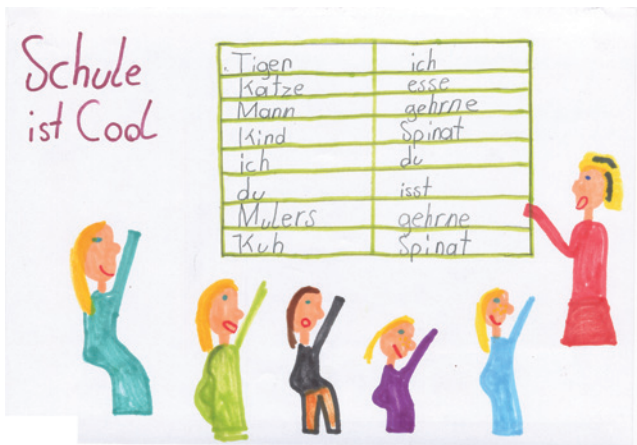 Schule
ist Cool
Tigen ich
Katze esse
Mann gehrne
Kind Spinat
ich du
du isst
Mulers gehrne
Kuh Spinat